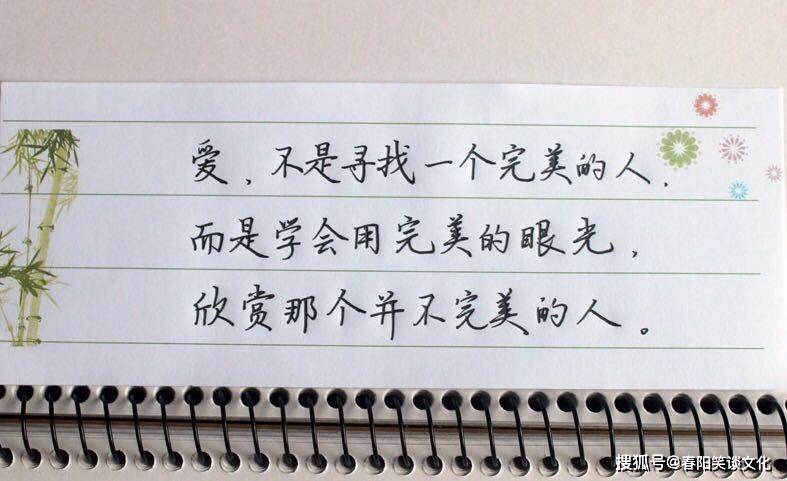 爱，不是寻找一个完美的人，
而是学会用完美的眼光，
欣赏那个并不完美的人。
搜狐号@春阳笑谈文化